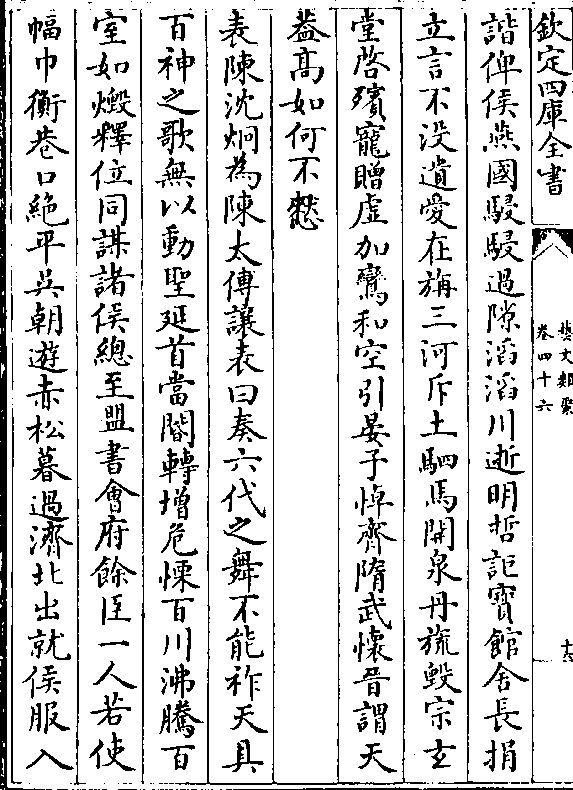 欽定四庫全書
藝文類聚
卷四十六
十六
諧俾侯燕國駸駸過隙滔滔川逝明哲詎寳館舍長捐
立言不没遺愛在旃三河斥土駟馬開泉丹旐毀宗玄
堂啓殯寵贈虚加鸞和空引晏子悼齊隋武懐晉謂天
葢髙如何不憗
表陳沈炯為陳太傅讓表曰奏六代之舞不能祚天具
百神之歌無以動聖延首當閽轉増危慄百川沸騰百
室如燬釋位同謀諸侯總至盟書㑹府餘臣一人若使
幅巾衡巷口絶平吳朝遊赤松暮過濟北出就侯服入